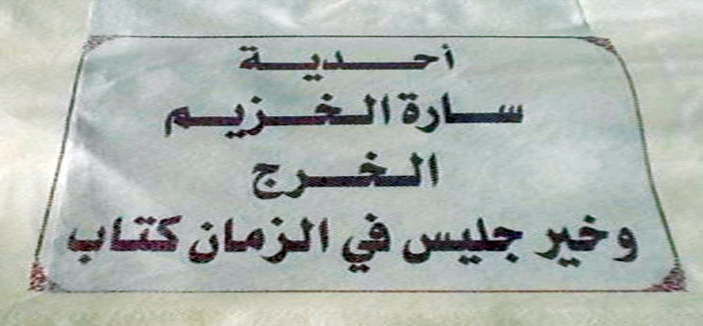 أحدية
سارة الخزيم
الخرج
وخير جليس في الزمان كتاب